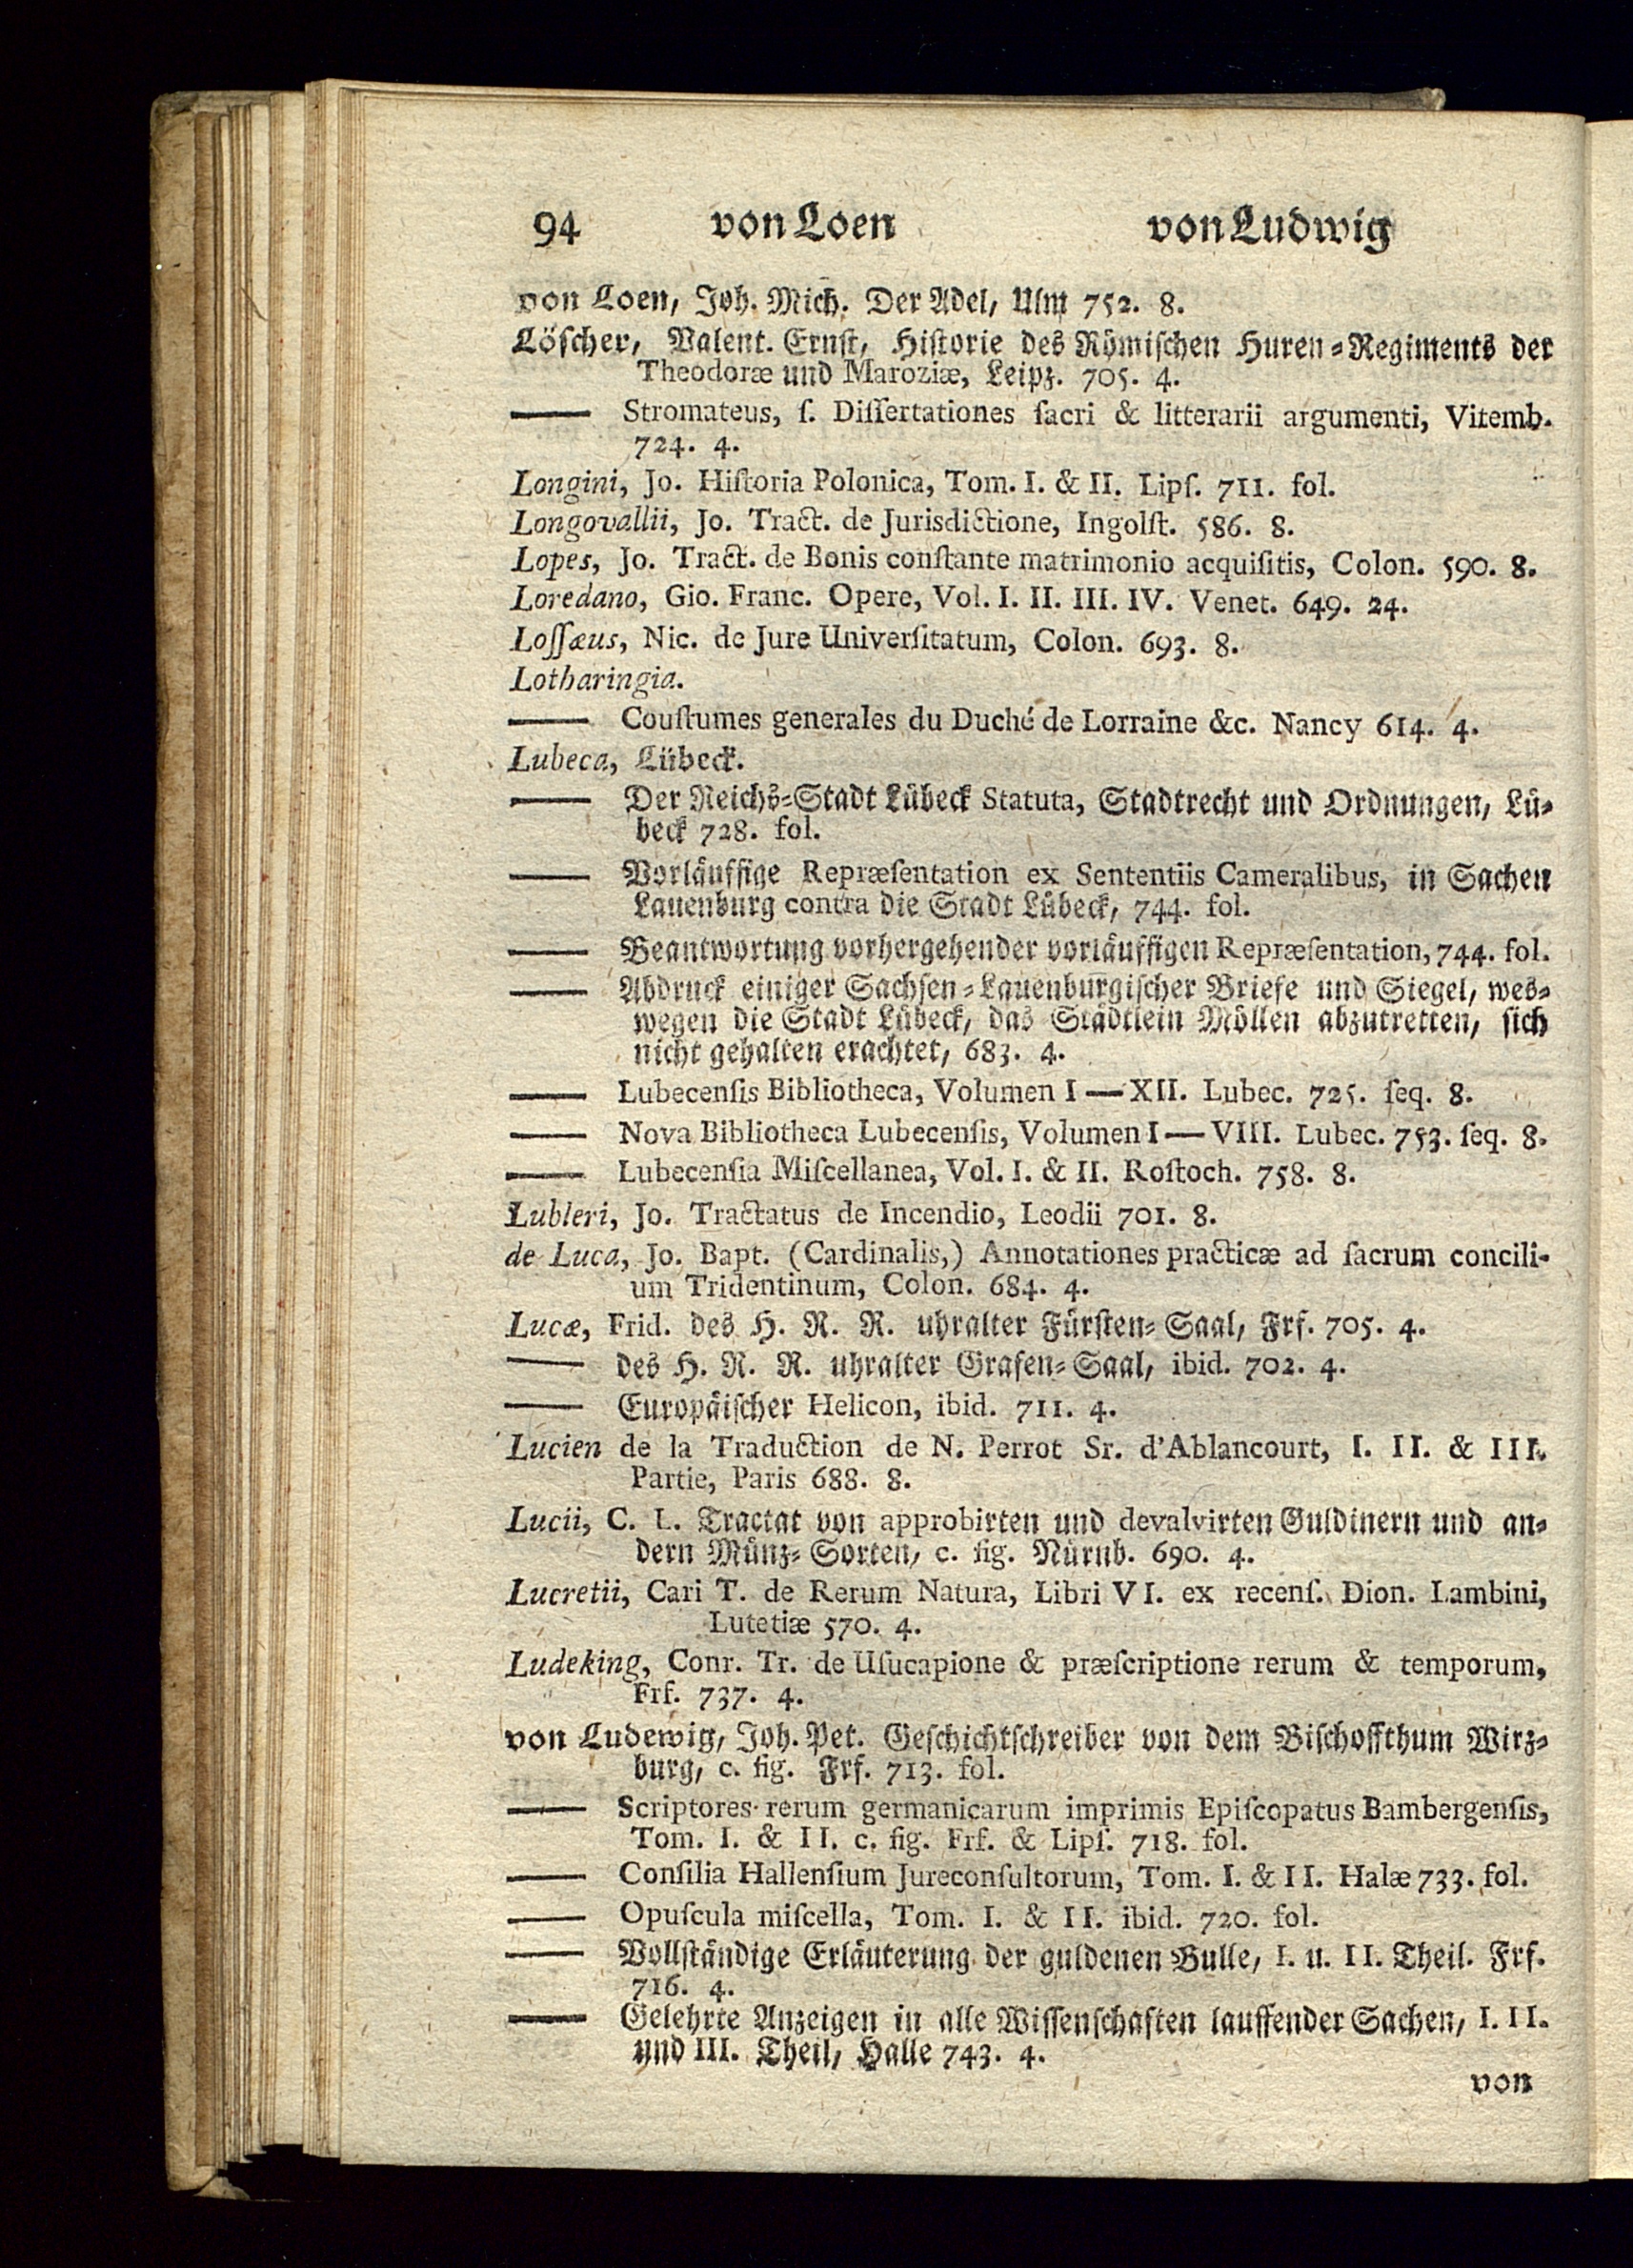 94 von Loen von Ludwig
von Loen, Joh. Mich. Der Adel, Ulm 752. 8.
Löscher, Valent. Ernst, Historie des Römischen Huren-Regiments der
Theodoræ und Maroziæ, Leipz. 705. 4.
—— Stromateus, ſ. Diſſertationes ſacri & litterarii argumenti, Vitemb.
724. 4.
Longini, Jo. Hiſtoria Polonica, Tom. I. & II. Lipſ. 711. fol.
Longovallii, Jo. Tract. de Jurisdictione, Ingolſt. 586. 8.
Lopes, Jo. Tract. de Bonis conſtante matrimonio acquiſitis, Colon. 590. 8.
Loredano, Gio. Franc. Opere, Vol. I. II. III. IV. Venet. 649. 24.
Loſſæus, Nic. de Jure Univerſitatum, Colon. 693. 8.
Lotharingia.
—— Couſtumes generales du Duché de Lorraine &c. Nancy 614. 4.
Lubeca, Lübeck.
—— Der Reichs-Stadt Lübeck Statuta, Stadtrecht und Ordnungen, Lü-
beck 728. fol.
—— Vorläuffige Repræſentation ex Sententiis Cameralibus, in Sachen
Lauenburg contra die Stadt Lübeck, 744. fol.
—— Beantwortung vorhergehender vorläuffigen Repræſentation, 744. fol.
—— Abdruck einiger Sachſen-Lauenburgiſcher Briefe und Siegel, wes-
wegen die Stadt Lübeck, das Städtlein Möllen abzutretten, ſich
nicht gehalten erachtet, 683. 4.
—— Lubecenſis Bibliotheca, Volumen I — XII. Lubec. 725. ſeq. 8.
—— Nova Bibliotheca Lubecenſis, Volumen I — VIII. Lubec. 753. ſeq. 8.
—— Lubecenſia Miſcellanea, Vol. I. & II. Roſtoch. 758. 8.
Lubleri, Jo. Tractatus de Incendio, Leodii 701. 8.
de Luca, Jo. Bapt. (Cardinalis,) Annotationes practicæ ad ſacrum concili-
um Tridentinum, Colon. 684. 4.
Lucæ, Frid. des H. R. R. uhralter Fürſten-Saal, Frf. 705. 4.
—— des H. R. R. uhralter Grafen-Saal, ibid. 702. 4.
—— Europäiſcher Helicon, ibid. 711. 4.
Lucien de la Traduction de N. Perrot Sr. d'Ablancourt, I. II. & III.
Partie, Paris 688. 8.
Lucii, C. L. Tractat von approbirten und devalvirten Guldinern und an-
dern Münz-Sorten, c. fig. Nürnb. 690. 4.
Lucretii, Cari T. de Rerum Natura, Libri VI. ex recenſ. Dion. Lambini,
Lutetiæ 570. 4.
Ludeking, Conr. Tr. de Uſucapione & præſcriptione rerum & temporum,
Frf. 737. 4.
von Ludewig, Joh. Pet. Geſchichtſchreiber von dem Biſchoffthum Wirz-
burg, c. fig. Frf. 713. fol.
—— Scriptores rerum germanicarum imprimis Epiſcopatus Bambergenſis,
Tom. I. & II. c. fig. Frf. & Lipſ. 718. fol.
—— Conſilia Hallenſium Jureconſultorum, Tom. I. & II. Halæ 733. fol.
—— Opuſcula miſcella, Tom. I. & II. ibid. 720. fol.
—— Vollſtändige Erläuterung der guldenen Bulle, I. u. II. Theil. Frf.
716. 4.
—— Gelehrte Anzeigen in alle Wiſſenſchaften lauffender Sachen, I. II.
und III. Theil, Halle 743. 4.
von